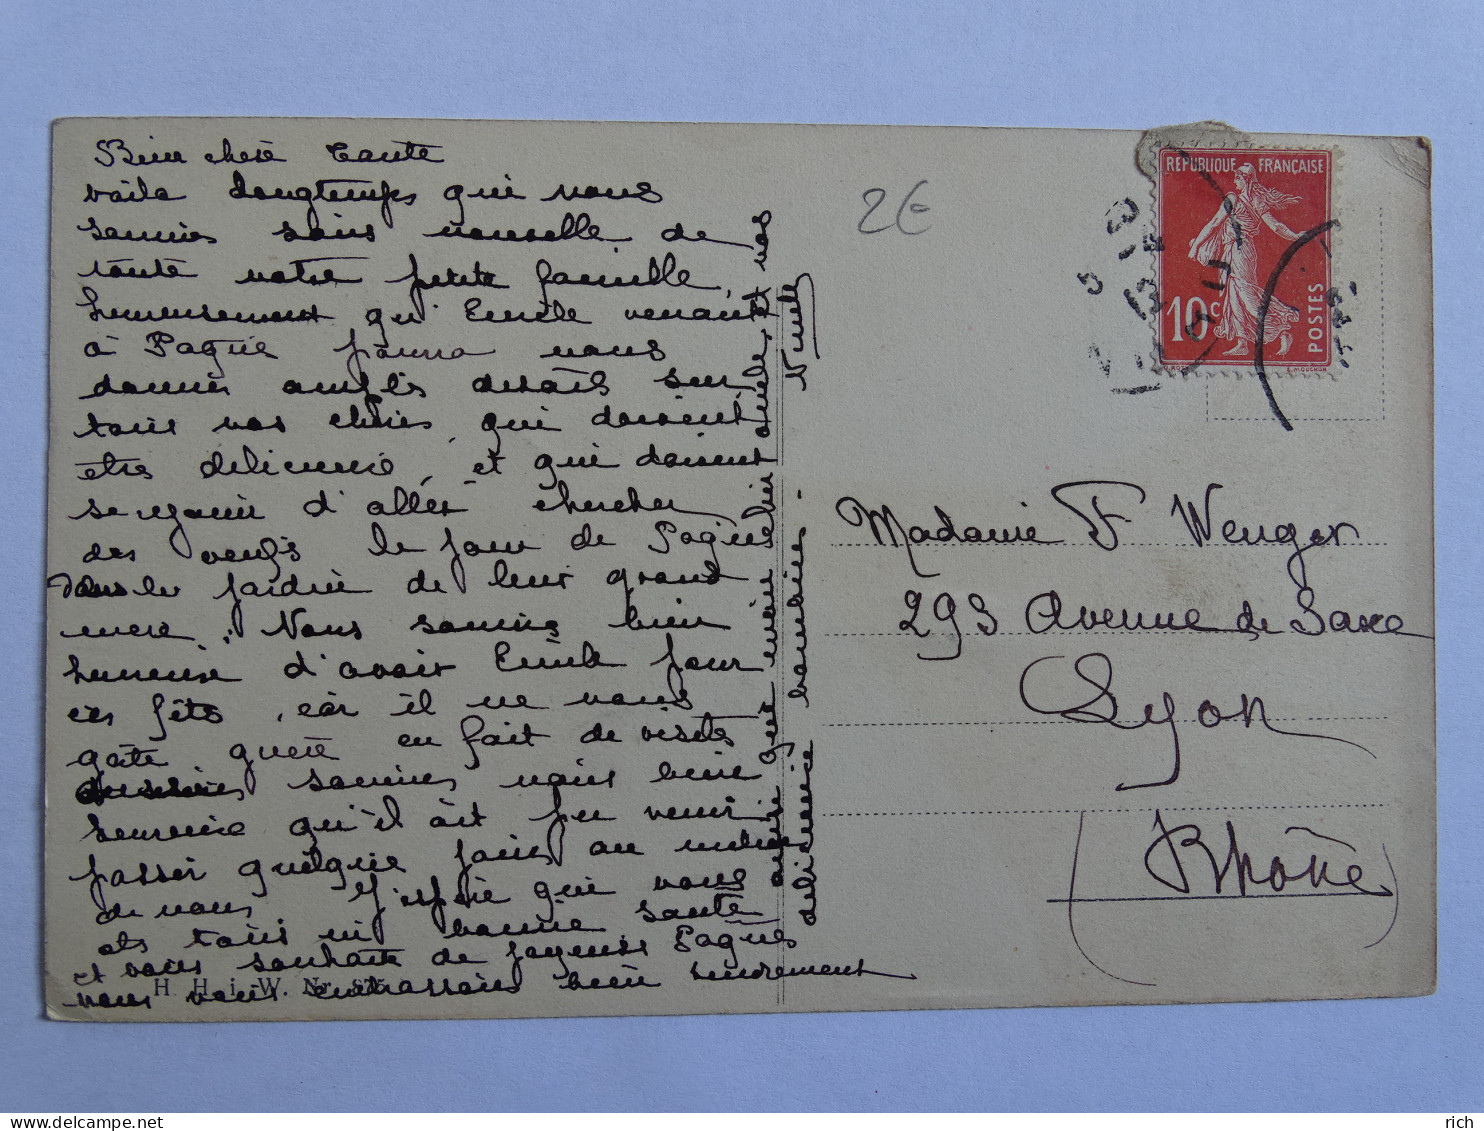 Bien chère Tante
voila longtemps que nous
sommes sans nouvelle de
toute votre petite famille,
heureusement qu'Emile venant
à Paque pourra nous
donner amples details sur
tous vos chéris qui doivent
etre delicieux, et qui doivent
se rejouir d'aller chercher
des oeufs le jour de Paques
dans le jardin de leur grand
mere. Nous sommes bien
heureuse d'avoir Emile pour
ces fêtes, car il ne nous
gâte guere en fait de visites
sommes nous bien
heureuse qu'il ait pu venir
passer quelque jours au milieu
de nous J'espère que vous
etes tous en bonne santé
et vous souhaite de joyeuses Paques
nous vous embrassons bien tendrement
H. H. i. W. Nr.
delicieuse bambins -
2€
REPUBLIQUE FRANÇAISE
10c
POSTES
Madame F Wenger
293 Avenue de Saxe
Lyon
(Rhône)
rich